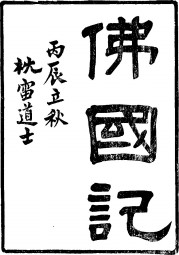 佛國記
丙辰立秋
枕雷道士